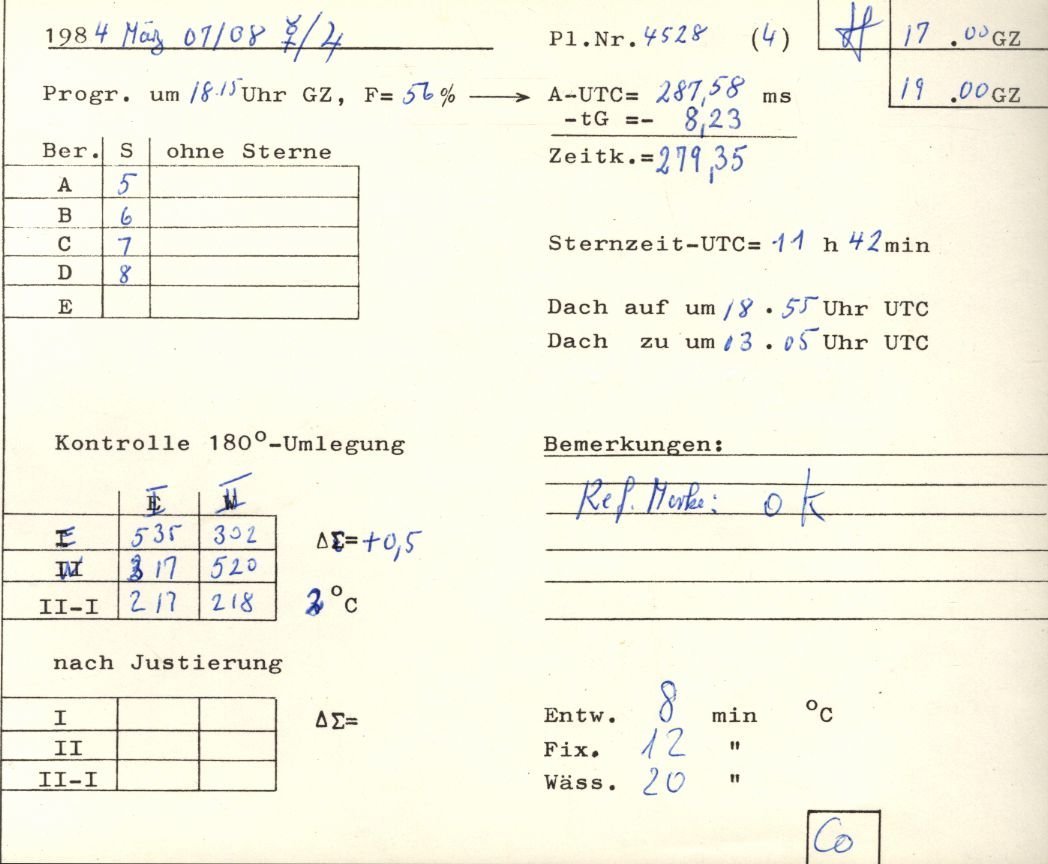 1984 März 07/08 ☿/♃
Pl.Nr. 4528 (4)
17 .00 GZ
Progr. um 18.15 Uhr GZ, F= 56 % → A-UTC= 287,58 ms
19 .00 GZ
-tG =- 8,23
Zeitk.= 279,35
Ber. S ohne Sterne
A 5
B 6
C 7
D 8
E
Sternzeit-UTC= 11 h 42 min
Dach auf um 18 . 55 Uhr UTC
Dach zu um 03 . 05 Uhr UTC
Kontrolle 180°-Umlegung
I II
E 535 302 ΔΣ= +0,5
W 317 520
II-I 217 218 2 °C
nach Justierung
I ΔΣ=
II
II-I
Bemerkungen:
Ref. Marke: ok
Entw. 8 min °C
Fix. 12 "
Wäss. 20 "
Co